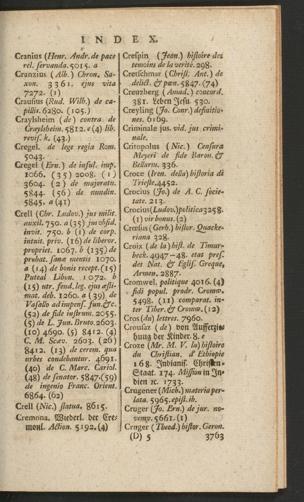 INDEX.
Cranius (Henr. Andr. de pace
rel. servanda. 5015. a
Cranzius (Alb.) Chron. Sa-
xon. 3361. ejus vita
7272. (1)
Crausius (Rud. Wilh.) de ca-
pillis. 6280. (105.)
Craylsheim (de) contra. de
Craylsheim. 5812. e (4) lib.
revis. k. (43.)
Cregel. de lege regia Rom.
5043.
Cregel (Ern.) de insul. imp.
1066. (35) 2008. (1)
3604. (2) de majoratu.
5844. (56) de nundin.
5845. a (41)
Crell (Chr. Ludov.) jus milit.
auxil. 750. a (35) jus obsid.
invit. 750. b (1) de corp.
intuit. priv. (16) de liberor.
propriet. 1067. b (135) de
probat. sanæ mentis 1070.
a (14) de bonis recept. (15)
Puteal Libon. 1072. b
(15) utr. fend. leg. ejus æsti-
mat. deb. 1260. a (39) de
Vasallo ad impens. fun. &c.
(52) de fide instrum. 2055.
(5) de L. Jun. Bruto. 2603.
(10) 4690. (5) 8412. (4)
C. M. Scæv. 2603. (26)
8412. (13) de cerem. qua
urbes condebantur. 4691.
(40) de C. Marc. Coriol.
(48) de senator. 5847. (59)
de ingenio Franc. Orient.
6864. (62)
Crell (Nic.) statua. 8615.
Cremona. Wiederl. der Cre-
monl. Action. 5192. (4)
Crespin (Jean.) histoire des
temoins de la verité. 298.
Cretschmar (Christ. Ant.) de
delict. & pœn. 5847. (74)
Creutzberg (Amad.) concord.
381. Leben Jesu. 530.
Creyling (Jo. Conr.) defsitio-
nes. 6169.
Criminale jus. vid. jus crimi-
nale.
Critopulus (Nic.) Censura
Meyeri de fide Baron. &
Bellarm. 336.
Croce (Iren. della) historia di
Trieste. 4452.
Crocius (Jo.) de A. C. socie-
tate. 213.
Crocius (Ludov.) politica 3258.
(1) vir bonus. (2)
Crœsius (Gerh.) histor. Quacke-
riana 328.
Croix (de la) hist. de Timur-
beck. 4947-48. etat pres.
des Nat. & Eglis. Greque,
Armen. 2887.
Cromwel. politique 4016. (4)
fidi popul. prudr. Cromw.
5498. (11) comparat. in-
ter Tiber. & Cromw. (12)
Cros (du) lettres. 7960.
Crousaz (de) von Aufferzie-
hung der Kinder. 8. e
Croze (Mr. M. V. la) histoire
du Christian. d'Ethiopie
168. Indianis. Christen-
Staat. 174. Mission in In-
dien ꝛc. 1733.
Crugener (Mich.) materia per-
lata. 5965. epist. ib.
Cruger (Jo. Ern.) de jur. no-
vemv. 5661. (1)
Cruger (Theod.) histor. Geron.
(D) 5
3763